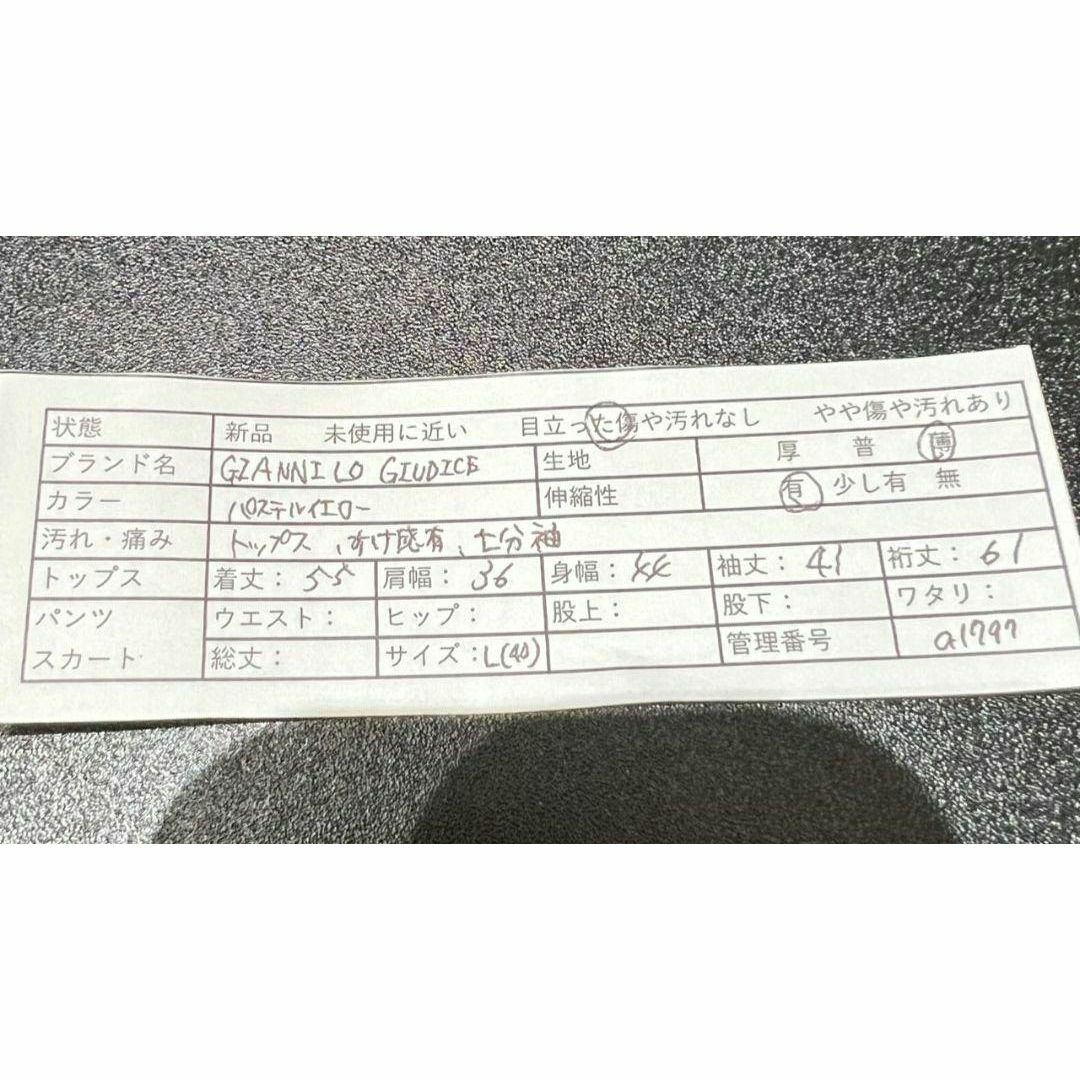 状態 新品 未使用に近い 目立った傷や汚れなし やや傷や汚れあり
ブランド名 GIANNI LO GIUDICE 生地 厚 普 薄
カラー パステルイエロー 伸縮性 有 少し有 無
汚れ・痛み トップス、すけ感有、七分袖
トップス 着丈：55 肩幅：36 身幅：44 袖丈：41 裄丈：61
パンツ ウエスト： ヒップ： 股上： 股下： ワタリ：
スカート 総丈： サイズ：L(40) 管理番号 a1797